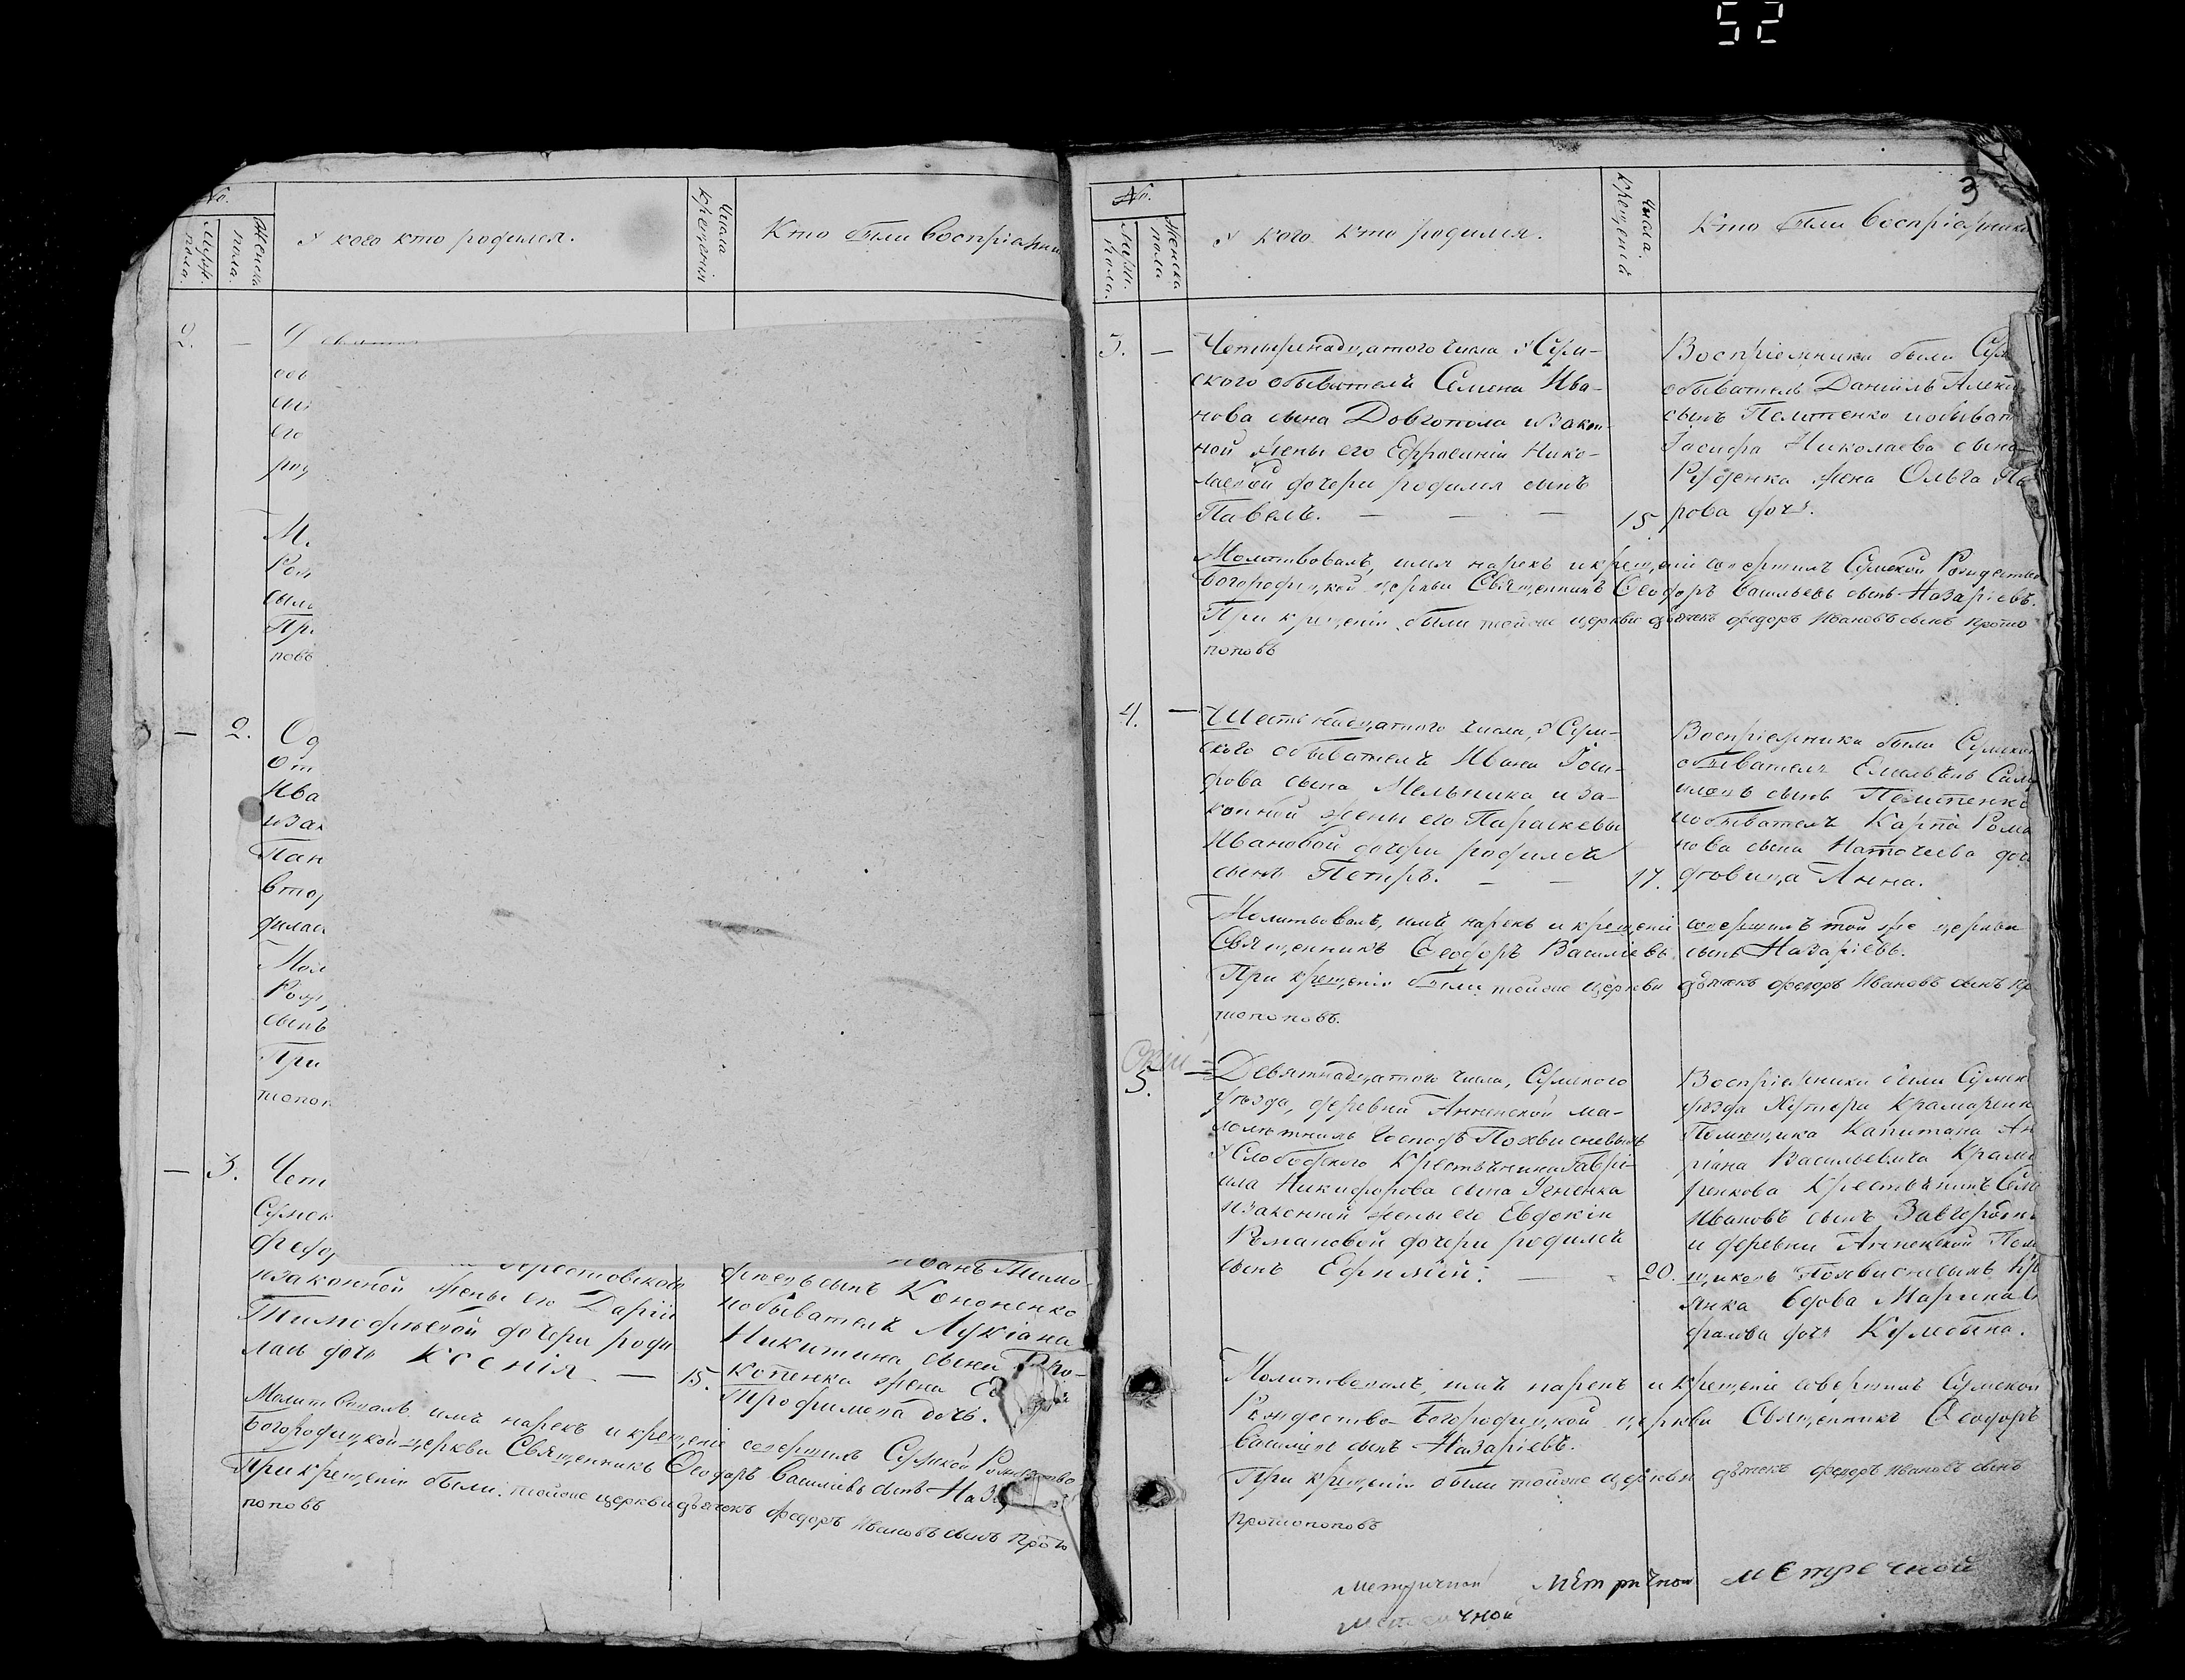 52
No.
Мужс. пола.
Женска пола.
У кого кто родился.
Числа крещенія
Кто были воспріемни
2. —
его
М.
При
повъ
— 2.
От
Ива
изак
Пан
втор
дилас
Мол
Рож
сынъ
При
топоп
— 3. Чет
Сумск
Федо
изаконной жены его Даріи
Тимофѣевой дочери роди
лась дочь Ксенія — 15.
Иванъ Тимо-
феевъ сынъ Кононенко
иобывателя Лукіана
Никитина сына Про-
копенка жена
Трофимова дочь.
Молитвовалъ имя нарекъ и крещеніе совершилъ Сумской Рождество
Богородицкой церкви Священникъ Ѳеодоръ Василіевъ сынъ
При крещеніи были: тойже церкви дьячекъ Федоръ Ивановъ сынъ Прото
поповъ
3
No.
Мужс. пола.
Женска пола
У кого кто родился.
Числа крещеній
Кто были воспріемники
3. — Четыренадцатого числа у Сум-
ского обывателя Семена Ива-
нова сына Довгопола изакон-
ной жены его Ефросиніи Нико-
лаевой дочери родился сынъ
Павелъ. — — — 15
Воспріемники были Сум
обыватель Даніилъ Алекс
сынъ Пелипенко иобыват
Іосифа Николаева сына
Руденка жена Ольга
рова дочь.
Молитвовалъ, имя нарекъ и крещеніе совершилъ Сумской Рождество
Богородицкой церкви Священникъ Ѳеодоръ Васильевъ сынъ Назаріевъ.
При крещеніи были тойже церкви дьячекъ Федоръ Ивановъ сынъ Прото
поповъ
4. — Шестьнадцатого числа, у Сум-
ского обывателя Ивана Іоси-
фова сына Мельника и за-
конной жены его Параскевы
Ивановой дочери родился
сынъ Петръ. — — 17.
Воспріемники были Сумской
обыватель Емельянъ
сынъ Пелипенко
иобывателя Карпа Рома
нова сына дочь
дѣвица Анна.
Молитвовалъ, имя нарекъ и крещеніе совершилъ той же церкви
Священникъ Ѳеодоръ Василіевъ сынъ Назаріевъ.
При крещеніи были тойже церкви дьячекъ Федоръ Ивановъ сынъ Про
топоповъ.
5. — Девятнадцатого числа, Сумского
уѣзда, деревни Анненской ма-
лолѣтнихъ Господъ Похвисневыхъ
у Слободского крестьянина Гаврі-
ила Никифорова сына
изаконной жены его Евдокіи
Романовой дочери родился
сынъ Ефимій. — 20.
Воспріемники были Сумск
уѣзда Хутора Крамаренк
Помѣщика Капитана Ан
ріана Васильевича Крама
ренкова крестьянинъ
Ивановъ сынъ
и деревни Анненской Пом
щиковъ Похвисневыхъ кр
янка вдова Марина
дочь
Молитвовалъ, имя нарекъ и крещеніе совершилъ Сумской
Рождество-Богородицкой церкви Священникъ Ѳеодоръ
Василіевъ сынъ Назаріевъ.
При крещеніи были тойже церкви дьячекъ Федоръ Ивановъ сынъ
Протопоповъ
Метричной Метричной метречной
Метричной